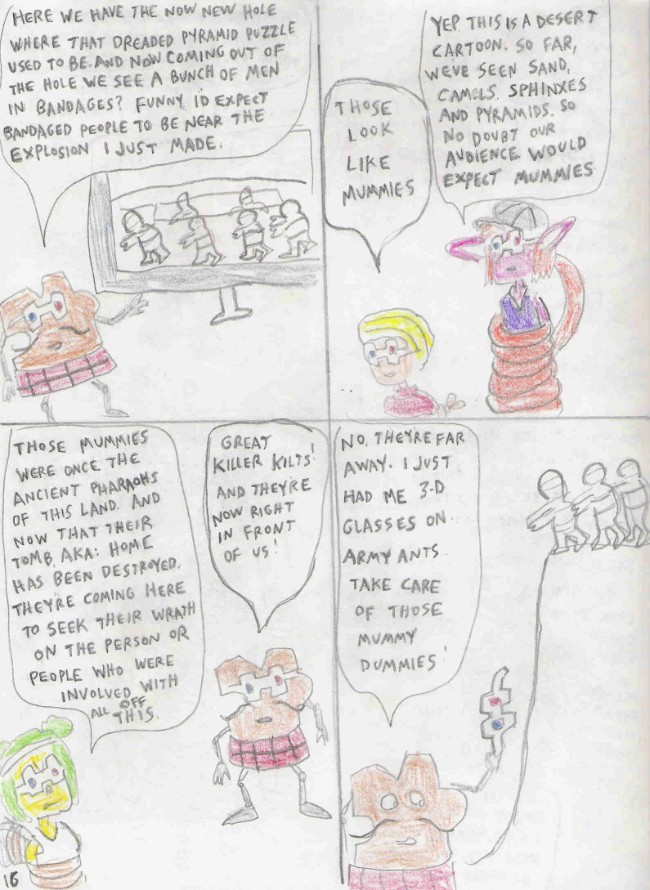 HERE WE HAVE THE NOW NEW HOLE
WHERE THAT DREADED PYRAMID PUZZLE
USED TO BE. AND NOW COMING OUT OF
THE HOLE WE SEE A BUNCH OF MEN
IN BANDAGES? FUNNY I'D EXPECT
BANDAGED PEOPLE TO BE NEAR THE
EXPLOSION I JUST MADE.
THOSE
LOOK
LIKE
MUMMIES
YEP THIS IS A DESERT
CARTOON. SO FAR,
WE'VE SEEN SAND,
CAMELS, SPHINXES
AND PYRAMIDS. SO
NO DOUBT OUR
AUDIENCE WOULD
EXPECT MUMMIES
THOSE MUMMIES
WERE ONCE THE
ANCIENT PHARAOHS
OF THIS LAND. AND
NOW THAT THEIR
TOMB, AKA: HOME
HAS BEEN DESTROYED.
THEY'RE COMING HERE
TO SEEK THEIR WRATH
ON THE PERSON OR
PEOPLE WHO WERE
INVOLVED WITH
ALL OFF
THIS.
GREAT
KILLER KILTS!
AND THEY'RE
NOW RIGHT
IN FRONT
OF US!
NO, THEY'RE FAR
AWAY. I JUST
HAD ME 3-D
GLASSES ON.
ARMY ANTS
TAKE CARE
OF THOSE
MUMMY
DUMMIES!
16